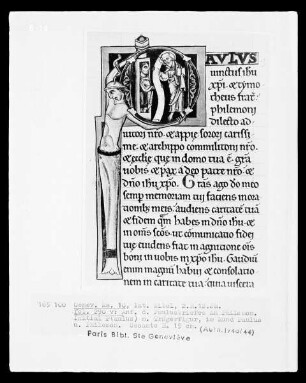 AULUS
uinctus ihu
xpi. et tymo
theus frat̄
philemoni
dilecto ad
iutori nr̄o. et appie sorori carissi
me. et archippo commilitoni nr̄o.
et eccłie que in domo tua ē. gr̄a
uobis et pax a deo patre nr̄o. et
dn̄o ihu xp̄o. Gr̄as ago deo meo
semp memoriam tui faciens in ora
tionib; meis. audiens caritatē tuā
et fidem qm̄ habes in dn̄o ihu. et
in om̄s sc̄os. ut cōmunicatio fidei
tue euidens fiat in agnitione om̄s
boni in uobis in xp̄o ihu. Gaudiū
enim magnū habui et consolatio
nem in caritate tua. quia uiscera
Genev. Ms. 10, lat. Bibel, E.d.12.Jh.
Paris Bibl. Ste Geneviève